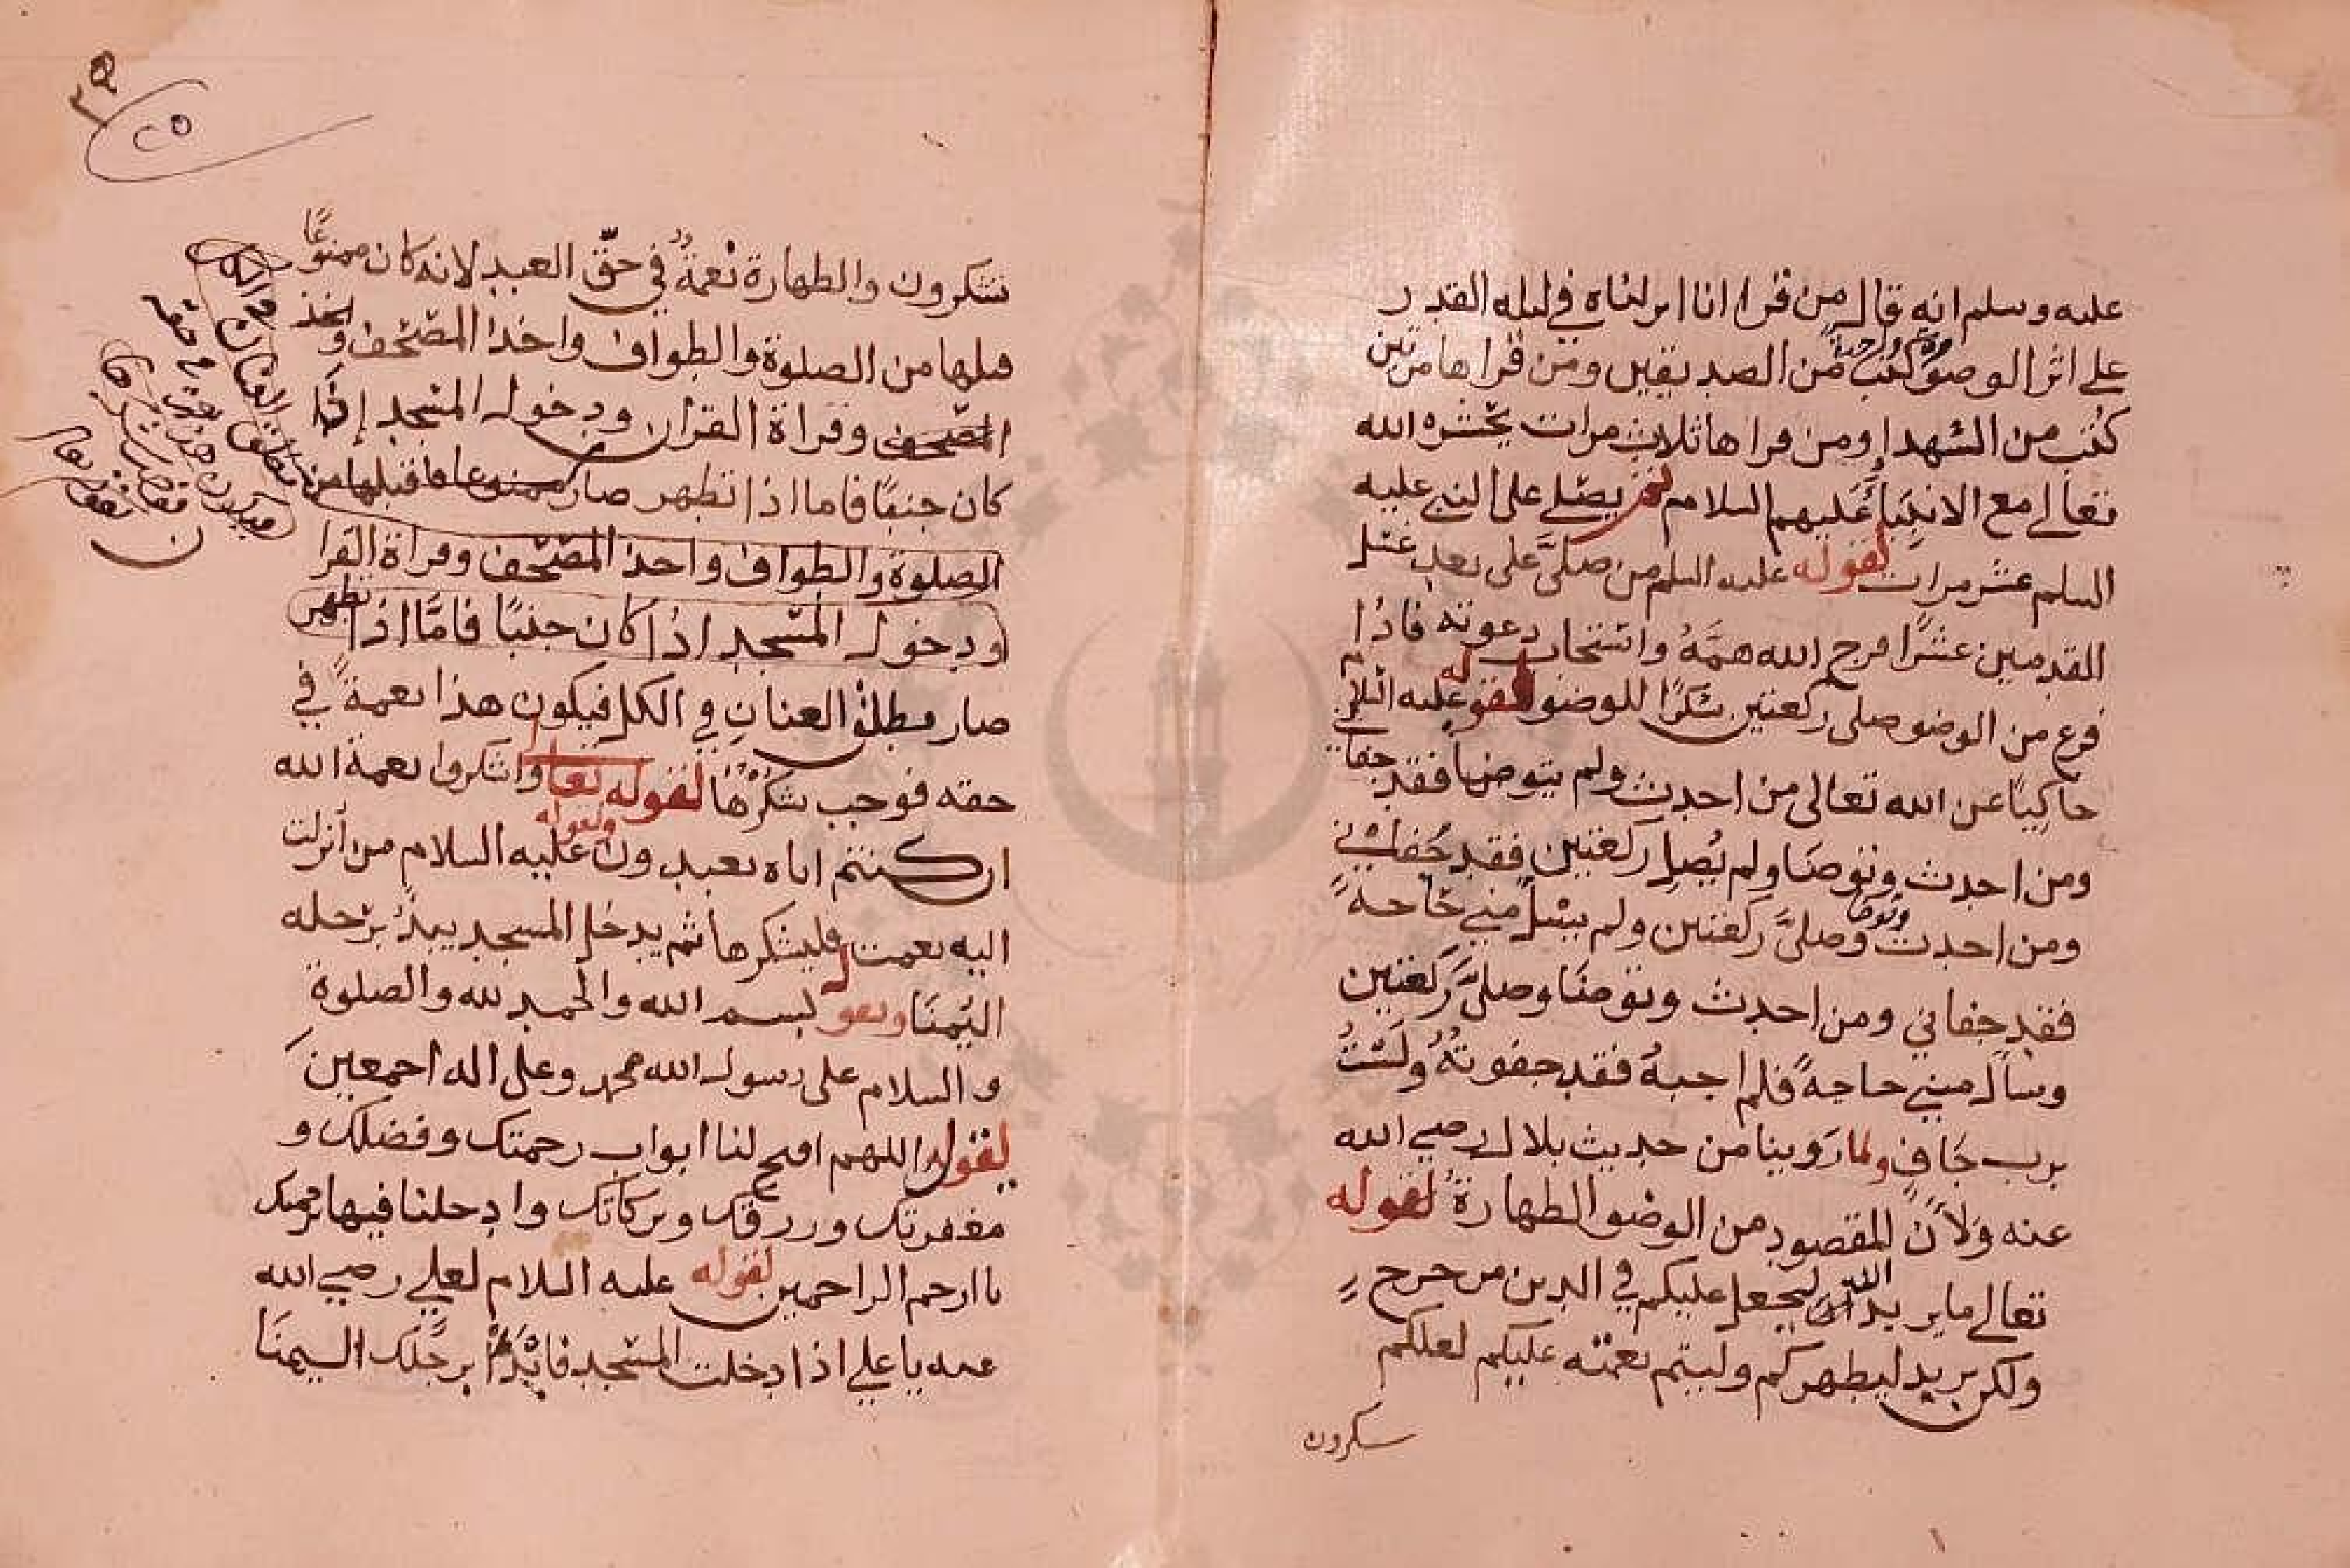 عليه وسلم انه قال من قرا انا انزلناه في ليله القدر
على اثر الوضو مرة واحدة كتب من الصديقين ومن قراها مرتين
كتب من الشهدا ومن قراها ثلاث مرات يحشره الله
تعالى مع الانبياء عليهم السلام ثم يصلى على النبي عليه
السلم عشر مرات لقوله عليه السلم من صلى على بعد غسل
القدمين عشرا فرج الله همه واستجاب دعوته فاذا
فرغ من الوضو صلى ركعتين شكرا للوضو لقوله عليه السلام
حاكيا عن الله تعالى من احدث ولم يتوضا فقد جفاني
ومن احدث وتوضا ولم يصل ركعتين فقد جفاني
ومن احدث وتوضا وصلى ركعتين ولم يسئل مني حاجة
فقد جفاني ومن احدث وتوضا وصلى ركعتين
وسال مني حاجة فلم اجبه فقد جفوته ولست
برب جاف ولما روينا من حديث بلال رضي الله
عنه ولان المقصود من الوضو الطهارة لقوله
تعالى ما يريد الله ليجعل عليكم في الدين من حرج
ولكن يريد ليطهركم وليتم نعمته عليكم لعلكم
سكرون
٢٩
٢٥
تشكرون والطهارة نعمة في حق العبد لانه كان ممنوعا
قبلها من الصلوة والطواف واخذ المصحف
المصحف وقراة القران ودخول المسجد اذا
كان جنبا فاما اذا تطهر صار ممنوعا قبلها من
الصلوة والطواف واخذ المصحف وقراة القرا
ودخول المسجد اذا كان جنبا فاما اذا تطهر
صار مطلق العنان في الكل فيكون هذا نعمة في
حقه فوجب شكرها لقوله تعا واشكروا نعمة الله
ان كنتم اياه تعبدون ولقوله عليه السلام من انزلت
اليه نعمت فليشكرها ثم يدخل المسجد يبدا برجله
اليمنا ويقول بسم الله والحمد لله والصلوة
والسلام على رسول الله محمد وعلى اله اجمعين
لقوله اللهم افتح لنا ابواب رحمتك وفضلك و
مغفرتك ورزقك وبركاتك وادخلنا فيها برحمتك
يا ارحم الراحمين لقوله عليه السلام لعلي رضي الله
عنه يا علي اذا دخلت المسجد فابدا برجلك اليمنا